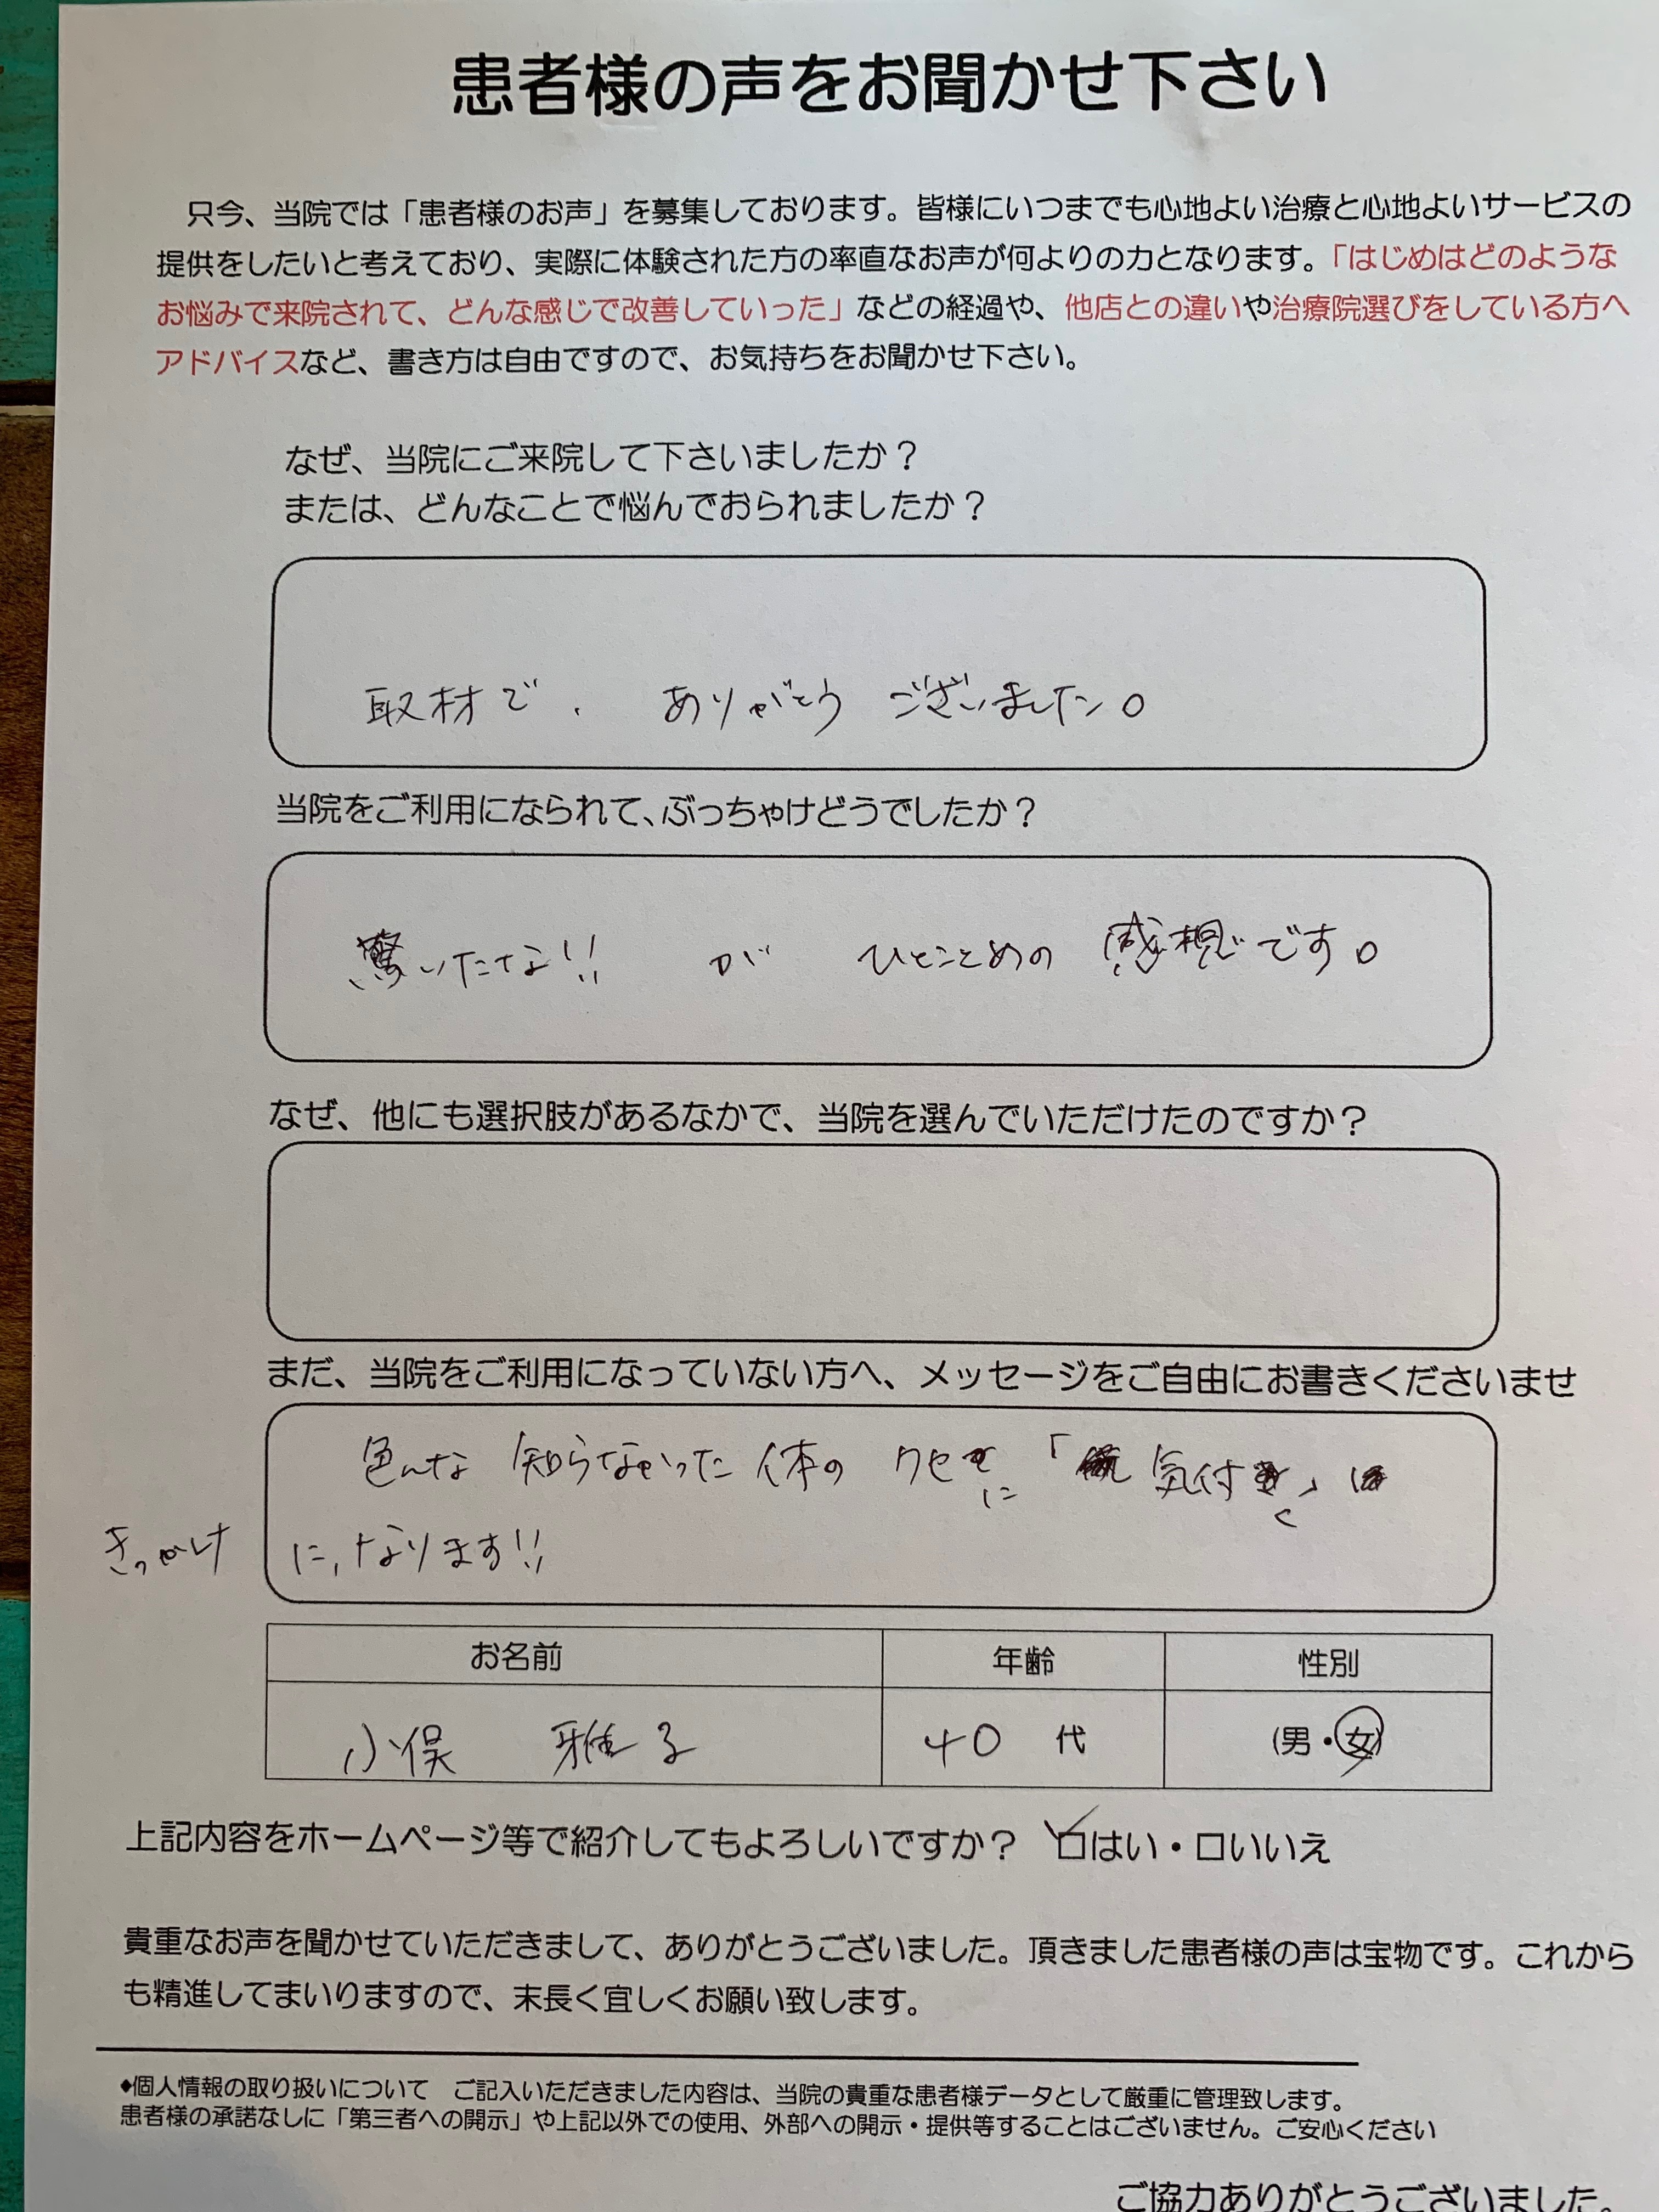 患者様の声をお聞かせ下さい
只今、当院では「患者様のお声」を募集しております。皆様にいつまでも心地よい治療と心地よいサービスの
提供をしたいと考えており、実際に体験された方の率直なお声が何よりの力となります。「はじめはどのような
お悩みで来院されて、どんな感じで改善していった」などの経過や、他店との違いや治療院選びをしている方へ
アドバイスなど、書き方は自由ですので、お気持ちをお聞かせ下さい。
なぜ、当院にご来院して下さいましたか？
または、どんなことで悩んでおられましたか？
取材で、ありがとうございました。
当院をご利用になられて、ぶっちゃけどうでしたか？
驚いたな!! が ひとことめの 感想です。
なぜ、他にも選択肢があるなかで、当院を選んでいただけたのですか？
まだ、当院をご利用になっていない方へ、メッセージをご自由にお書きくださいませ
色んな 知らなかった 体の クセに「気付く」
きっかけ に、なります!!
お名前 年齢 性別
小俣 雅子 40 代 (男・女)
上記内容をホームページ等で紹介してもよろしいですか？ ☑はい・□いいえ
貴重なお声を聞かせていただきまして、ありがとうございました。頂きました患者様の声は宝物です。これから
も精進してまいりますので、末長く宜しくお願い致します。
◆個人情報の取り扱いについて ご記入いただきました内容は、当院の貴重な患者様データとして厳重に管理致します。
患者様の承諾なしに「第三者への開示」や上記以外での使用、外部への開示・提供等することはございません。ご安心ください
ご協力ありがとうございました。